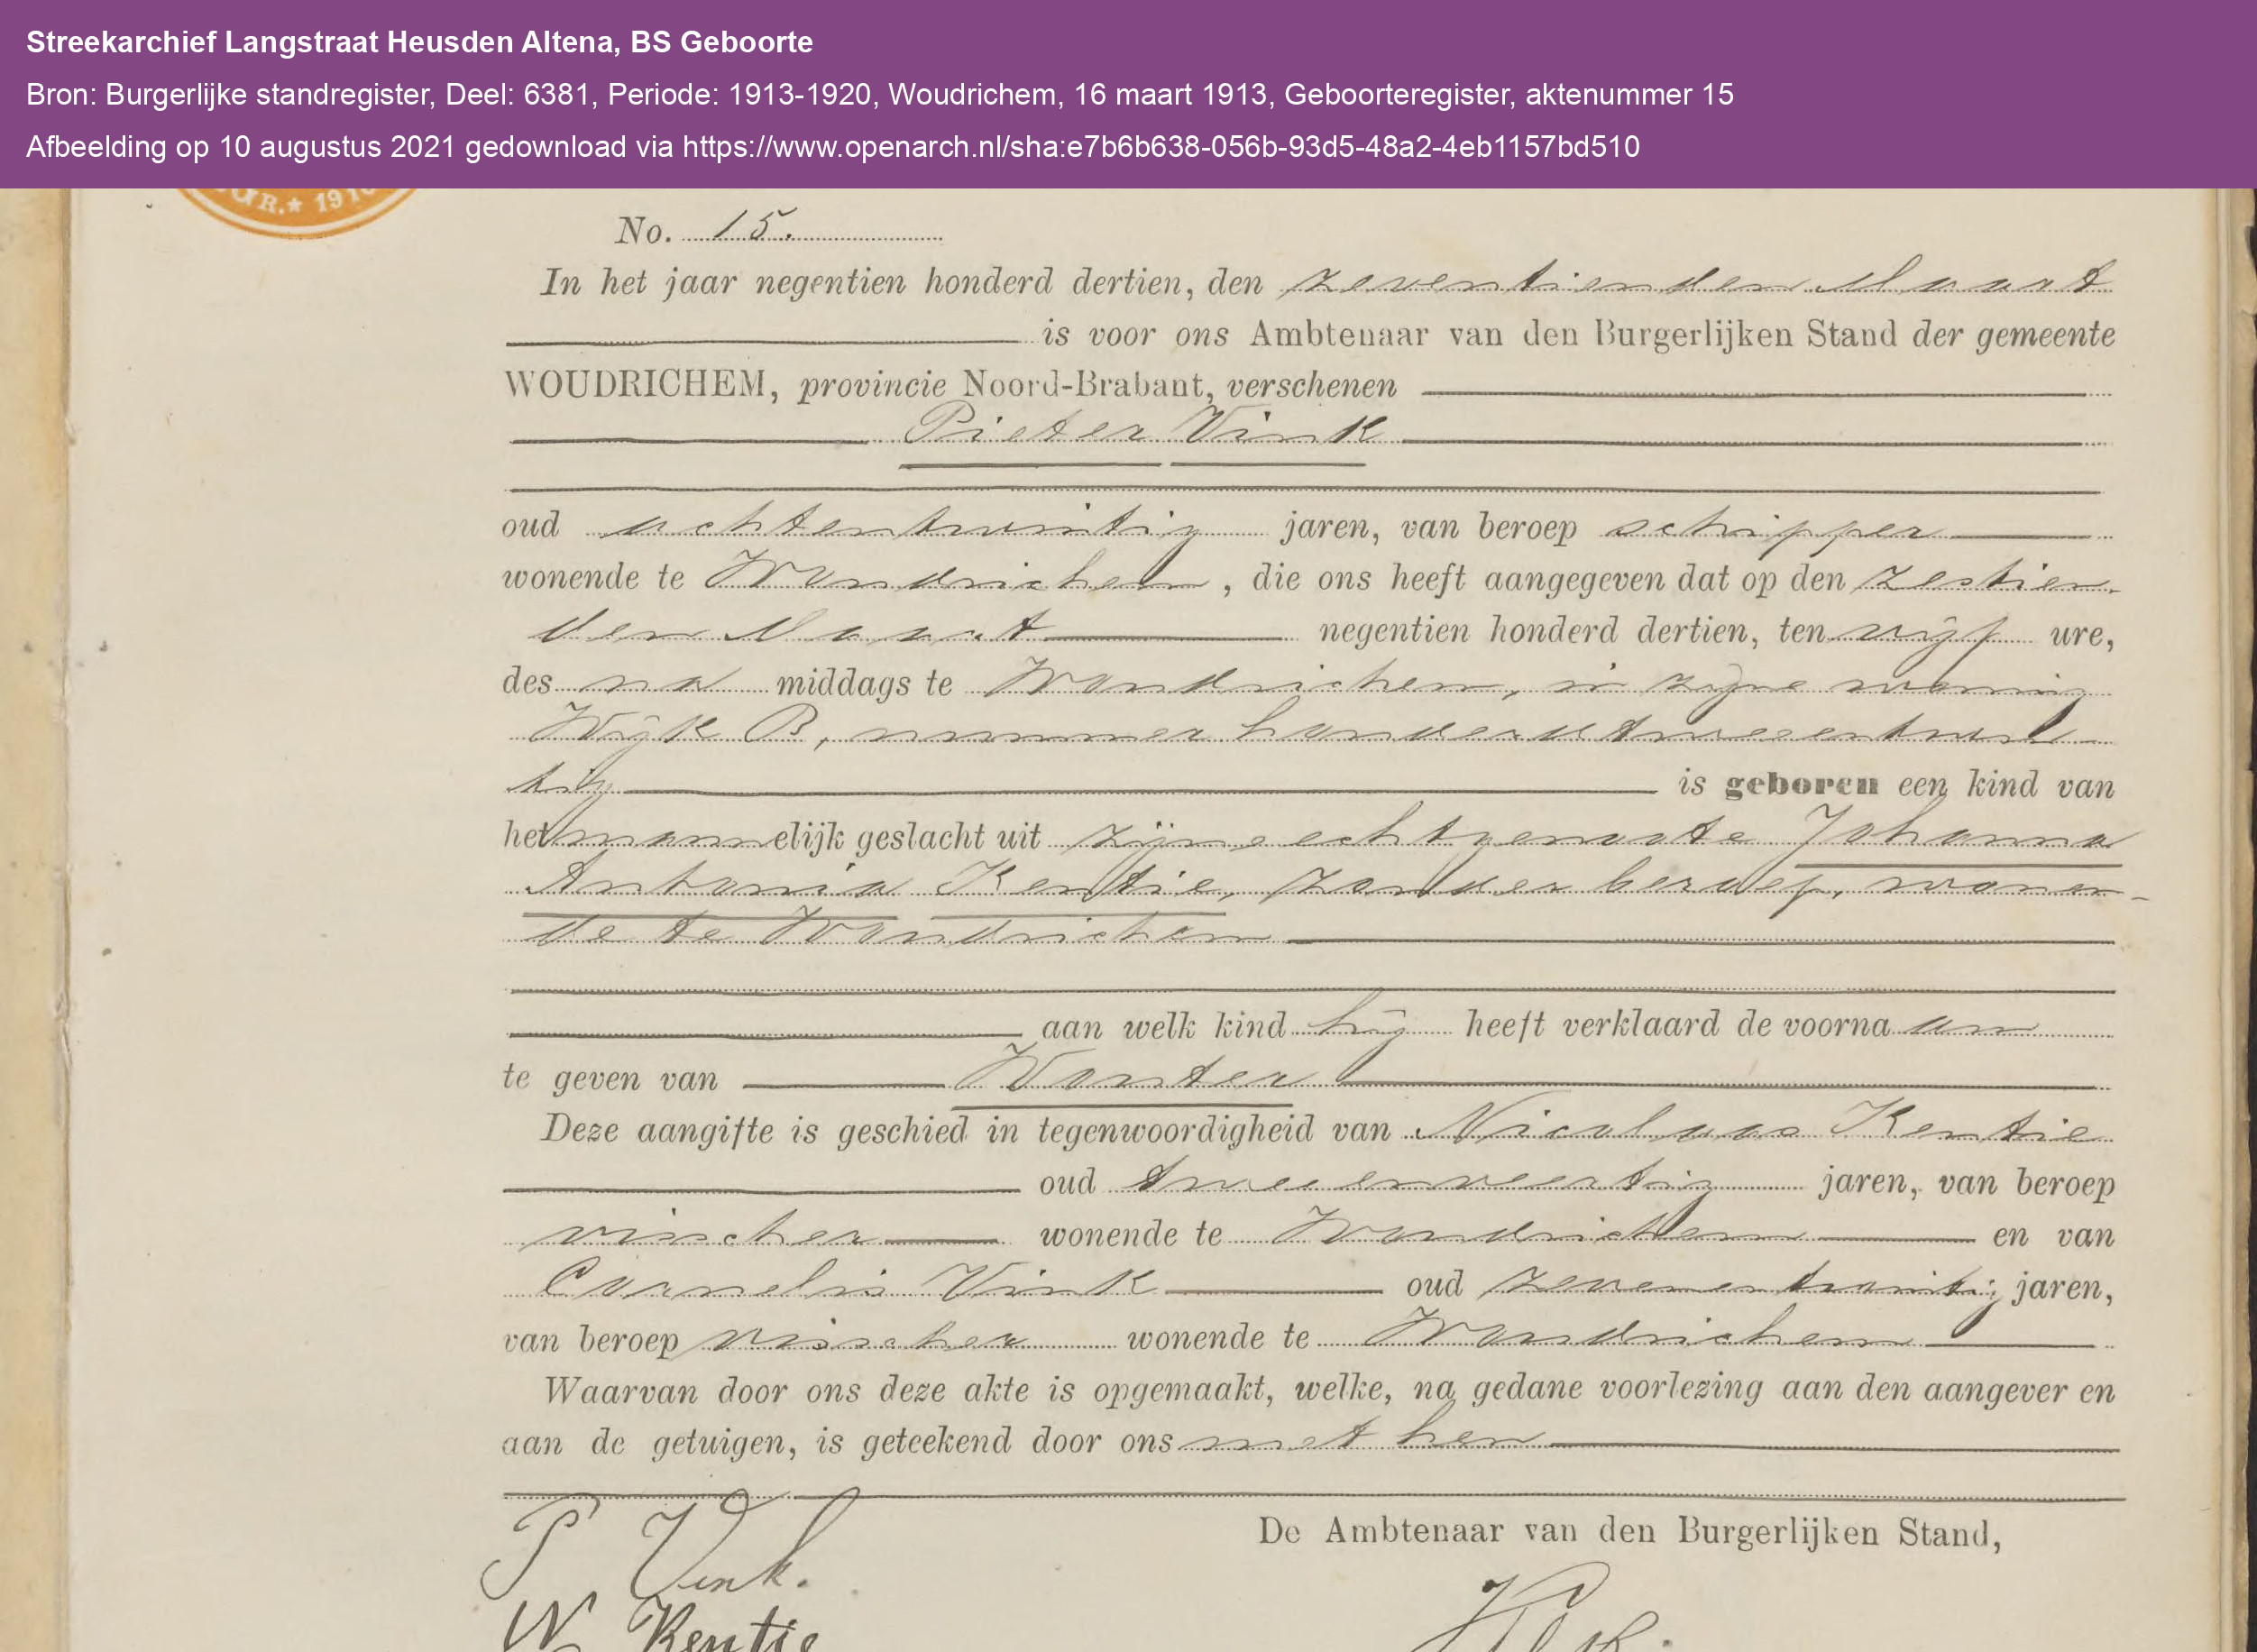 Streekarchief Langstraat Heusden Altena, BS Geboorte
Bron: Burgerlijke standregister, Deel: 6381, Periode: 1913-1920, Woudrichem, 16 maart 1913, Geboorteregister, aktenummer 15
Afbeelding op 10 augustus 2021 gedownload via https://www.openarch.nl/sha:e7b6b638-056b-93d5-48a2-4eb1157bd510
No. 15.
In het jaar negentien honderd dertien, den zeventienden Maart
is voor ons Ambtenaar van den Burgerlijken Stand der gemeente
WOUDRICHEM, provincie Noord-Brabant, verschenen
Pieter Vink
oud achtentwintig jaren, van beroep schipper
wonende te Woudrichem, die ons heeft aangegeven dat op den zestien-
den Maart negentien honderd dertien, ten vijf ure,
des na middags te Woudrichem, in zijne woning
Wijk B, nummer honderdtweeentwin-
tig is geboren een kind van
het mannelijk geslacht uit zijne echtgenoote Johanna
Antonia Kentie, zonder beroep, wonen-
de te Woudrichem
aan welk kind hij heeft verklaard de voorna am
te geven van Wouter
Deze aangifte is geschied in tegenwoordigheid van Nicolaas Kentie
oud tweeenveertig jaren, van beroep
visscher wonende te Woudrichem en van
Cornelis Vink oud zevenentwintig jaren,
van beroep visscher wonende te Woudrichem
Waarvan door ons deze akte is opgemaakt, welke, na gedane voorlezing aan den aangever en
aan de getuigen, is geteekend door ons met hen
De Ambtenaar van den Burgerlijken Stand,
P Vink.
N Kentie